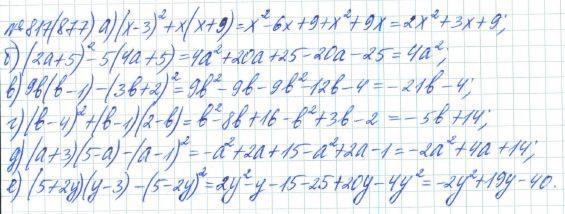 №817(877) а) (x-3)²+x(x+9)=x²-6x+9+x²+9x=2x²+3x+9;
б) (2a+5)²-5(4a+5)=4a²+20a+25-20a-25=4a²;
в) 9b(b-1)-(3b+2)²=9b²-9b-9b²-12b-4=-21b-4;
г) (b-4)²+(b-1)(2-b)=b²-8b+16-b²+3b-2=-5b+14;
д) (a+3)(5-a)-(a-1)²=-a²+2a+15-a²+2a-1=-2a²+4a+14;
е) (5+2y)(y-3)-(5-2y)²=2y²-y-15-25+20y-4y²=-2y²+19y-40.